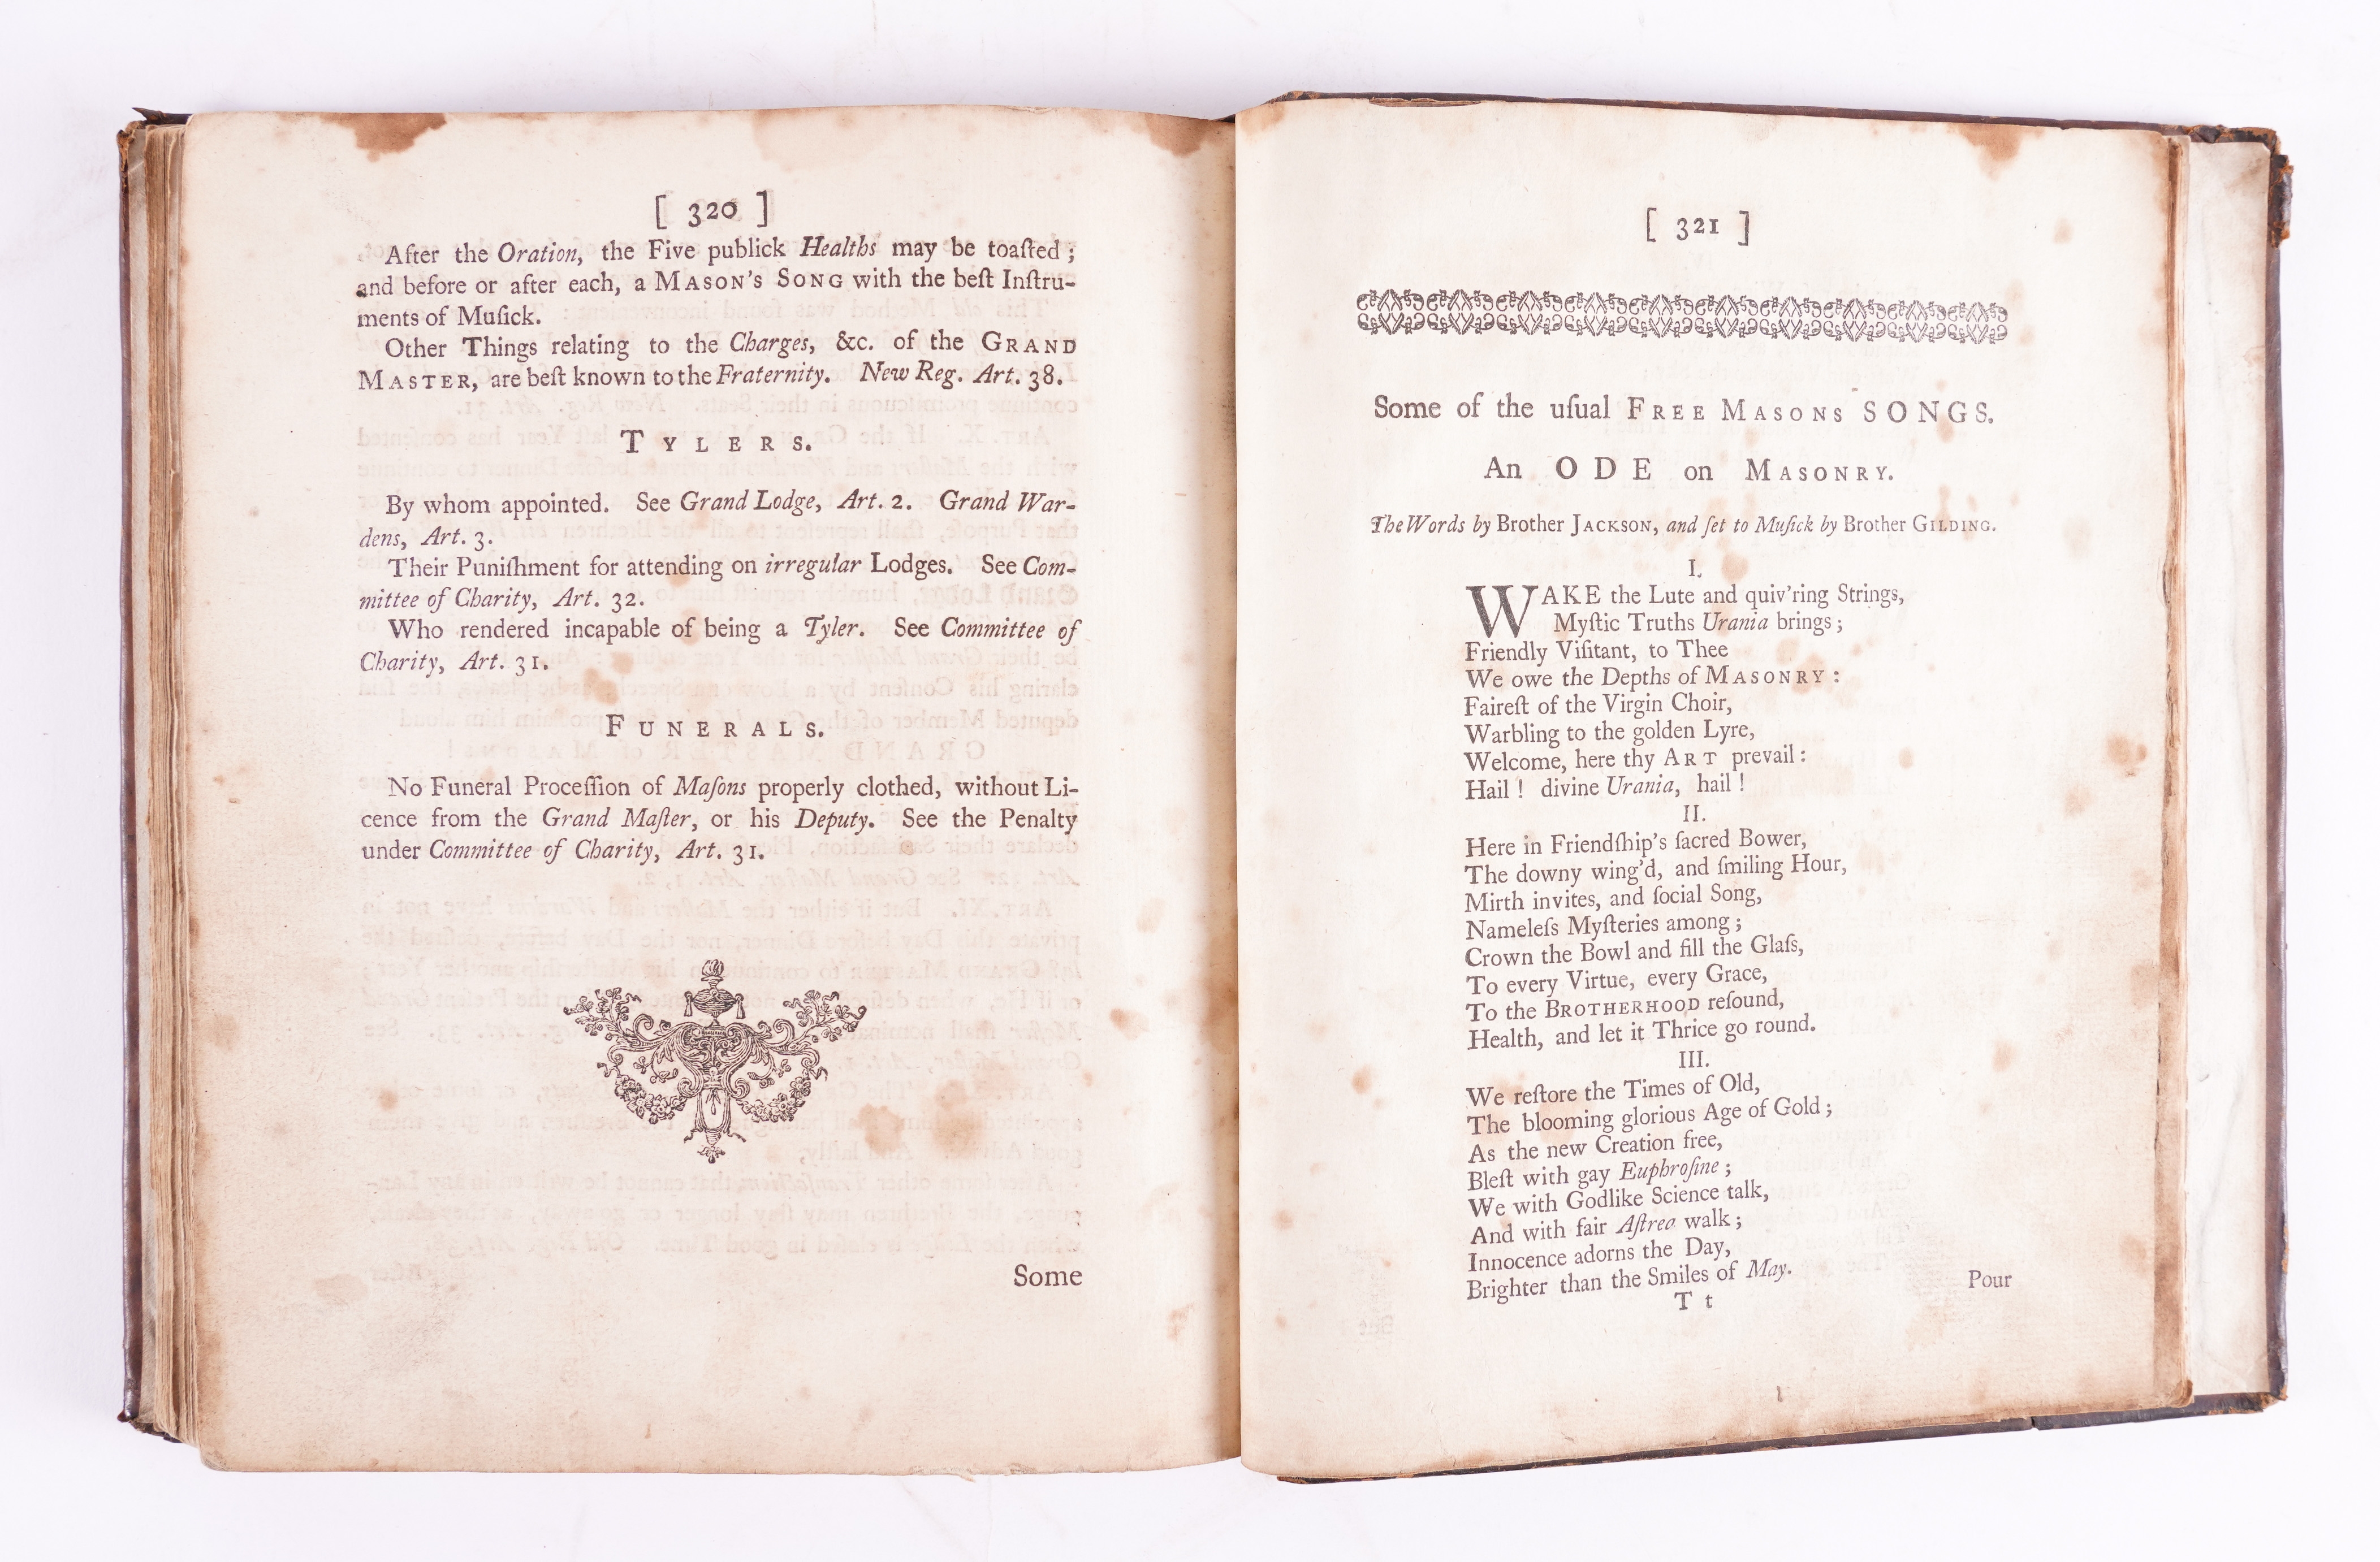 [ 320 ]
After the Oration, the Five publick Healths may be toaſted ;
and before or after each, a MASON'S SONG with the beſt Inſtru-
ments of Muſick.
Other Things relating to the Charges, &c. of the GRAND
MASTER, are beſt known to the Fraternity. New Reg. Art. 38.
TYLERS.
By whom appointed. See Grand Lodge, Art. 2. Grand War-
dens, Art. 3.
Their Puniſhment for attending on irregular Lodges. See Com-
mittee of Charity, Art. 32.
Who rendered incapable of being a Tyler. See Committee of
Charity, Art. 31.
FUNERALS.
No Funeral Proceſſion of Maſons properly clothed, without Li-
cence from the Grand Maſter, or his Deputy. See the Penalty
under Committee of Charity, Art. 31.
Some
[ 321 ]
Some of the uſual FREE MASONS SONGS.
An ODE on MASONRY.
The Words by Brother JACKSON, and ſet to Muſick by Brother GILDING.
I.
WAKE the Lute and quiv'ring Strings,
Myſtic Truths Urania brings ;
Friendly Viſitant, to Thee
We owe the Depths of MASONRY :
Faireſt of the Virgin Choir,
Warbling to the golden Lyre,
Welcome, here thy ART prevail :
Hail ! divine Urania, hail !
II.
Here in Friendſhip's ſacred Bower,
The downy wing'd, and ſmiling Hour,
Mirth invites, and ſocial Song,
Nameleſs Myſteries among ;
Crown the Bowl and fill the Glaſs,
To every Virtue, every Grace,
To the BROTHERHOOD reſound,
Health, and let it Thrice go round.
III.
We reſtore the Times of Old,
The blooming glorious Age of Gold ;
As the new Creation free,
Bleſt with gay Euphroſine ;
We with Godlike Science talk,
And with fair Aſtrea walk ;
Innocence adorns the Day,
Brighter than the Smiles of May.
T t
Pour